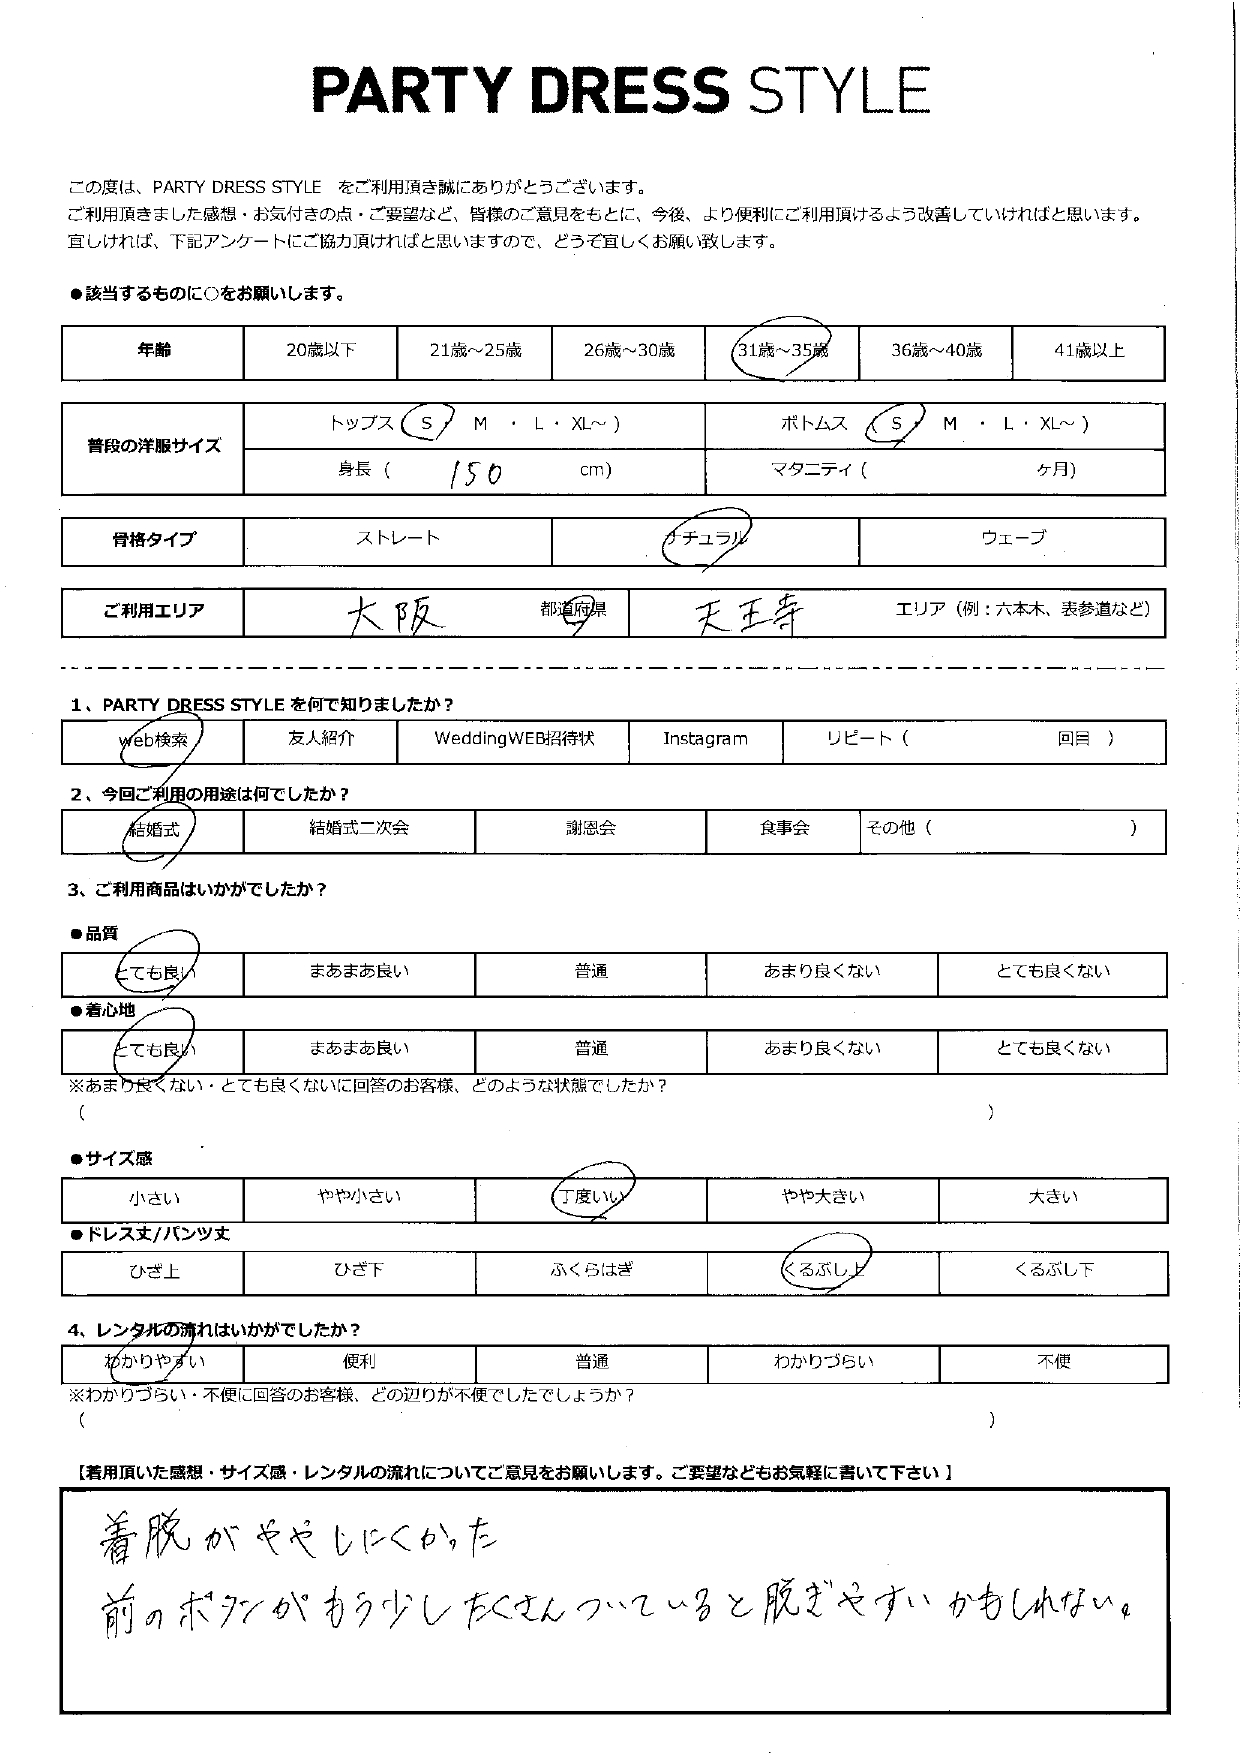 PARTY DRESS STYLE
この度は、PARTY DRESS STYLE　をご利用頂き誠にありがとうございます。
ご利用頂きました感想・お気付きの点・ご要望など、皆様のご意見をもとに、今後、より便利にご利用頂けるよう改善していければと思います。
宜しければ、下記アンケートにご協力頂ければと思いますので、どうぞ宜しくお願い致します。
●該当するものに○をお願いします。
年齢 20歳以下 21歳～25歳 26歳～30歳 31歳～35歳 36歳～40歳 41歳以上
普段の洋服サイズ
トップス ( S ・ M ・ L ・ XL～ ) ボトムス ( S ・ M ・ L ・ XL～ )
身長 ( 150 cm) マタニティ ( ケ月)
骨格タイプ ストレート ナチュラル ウェーブ
ご利用エリア 大阪 都道府県 天王寺 エリア（例：六本木、表参道など）
1、PARTY DRESS STYLE を何で知りましたか？
web検索 友人紹介 WeddingWEB招待状 Instagram リピート ( 回目 )
2、今回ご利用の用途は何でしたか？
結婚式 結婚式二次会 謝恩会 食事会 その他 ( )
3、ご利用商品はいかがでしたか？
●品質
とても良い まあまあ良い 普通 あまり良くない とても良くない
●着心地
とても良い まあまあ良い 普通 あまり良くない とても良くない
※あまり良くない・とても良くないに回答のお客様、どのような状態でしたか？
( )
●サイズ感
小さい やや小さい 丁度いい やや大きい 大きい
●ドレス丈/パンツ丈
ひざ上 ひざ下 ふくらはぎ くるぶし上 くるぶし下
4、レンタルの流れはいかがでしたか？
わかりやすい 便利 普通 わかりづらい 不便
※わかりづらい・不便に回答のお客様、どの辺りが不便でしたでしょうか？
( )
【着用頂いた感想・サイズ感・レンタルの流れについてご意見をお願いします。ご要望などもお気軽に書いて下さい 】
着脱がややしにくかった
前のボタンがもう少したくさんついていると脱ぎやすいかもしれない。